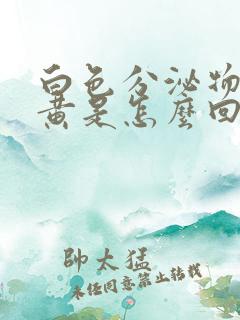 白色分泌物
黄是怎麽回
帥太猛
未经同意禁止转载